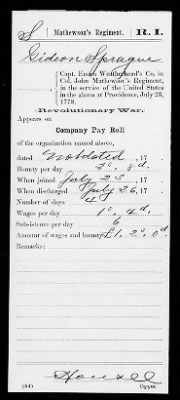 S Mathewson's Regiment. R. I.
Gideon Sprague
Capt. Enoch Weatherhead's Co. in
Col. John Mathewson's Regiment,
in the service of the United States
in the alarm at Providence, July 23,
1778.
Revolutionary War.
Appears on
Company Pay Roll
of the organization named above,
dated Not dated , 17
Bounty per day 2s. 8d.
When joined July 23 , 17 .
When discharged July 26 , 17 .
Number of days 4
Wages per day 1s. 4d.
Subsistence per day 6
Amount of wages and bounty £1. 2s. 0d
Remarks:
(545) Copyist.